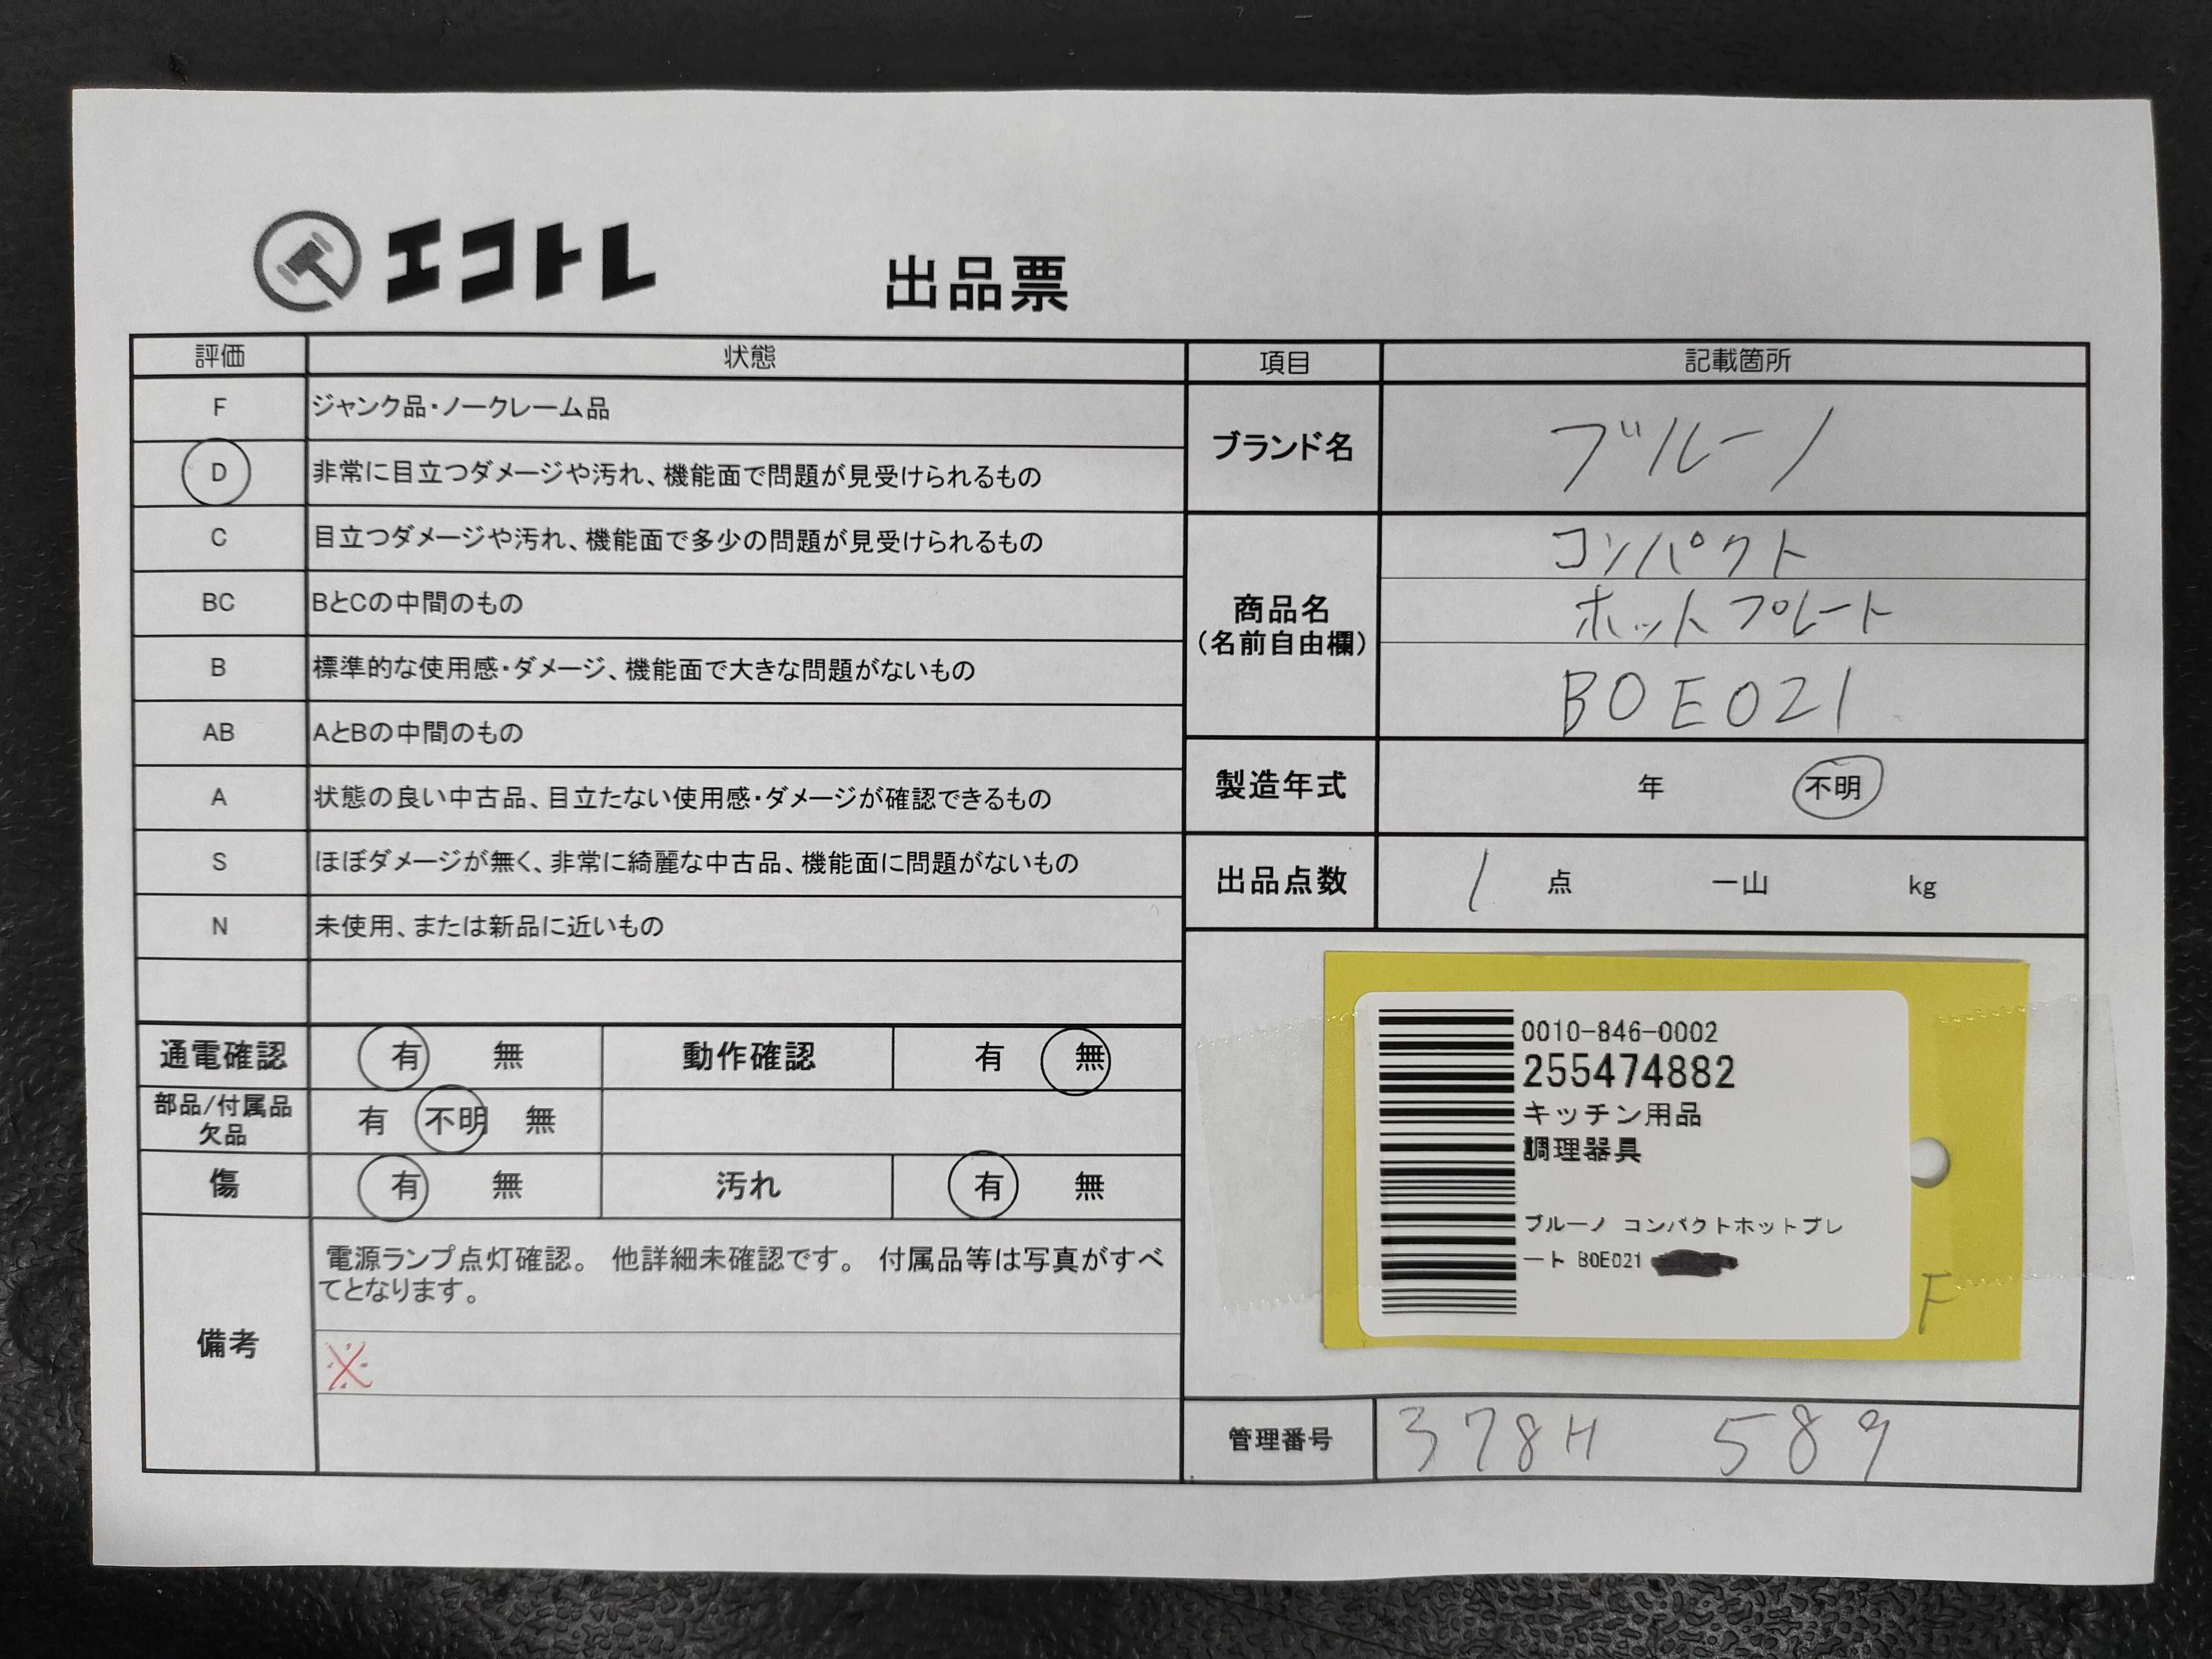 エコトレ
出品票
評価 状態
F ジャンク品・ノークレーム品
D 非常に目立つダメージや汚れ、機能面で問題が見受けられるもの
C 目立つダメージや汚れ、機能面で多少の問題が見受けられるもの
BC BとCの中間のもの
B 標準的な使用感・ダメージ、機能面で大きな問題がないもの
AB AとBの中間のもの
A 状態の良い中古品、目立たない使用感・ダメージが確認できるもの
S ほぼダメージが無く、非常に綺麗な中古品、機能面に問題がないもの
N 未使用、または新品に近いもの
通電確認 有 無 動作確認 有 無
部品/付属品
欠品 有 不明 無
傷 有 無 汚れ 有 無
備考
電源ランプ点灯確認。 他詳細未確認です。 付属品等は写真がすべ
てとなります。
※
項目 記載箇所
ブランド名 ブルーノ
商品名
(名前自由欄)
コンパクト
ホットプレート
BOE021
製造年式 年 不明
出品点数 1 点 一山 kg
0010-846-0002
255474882
キッチン用品
調理器具
ブルーノ コンパクトホットプレ
ート BOE021
F
管理番号 378H 589